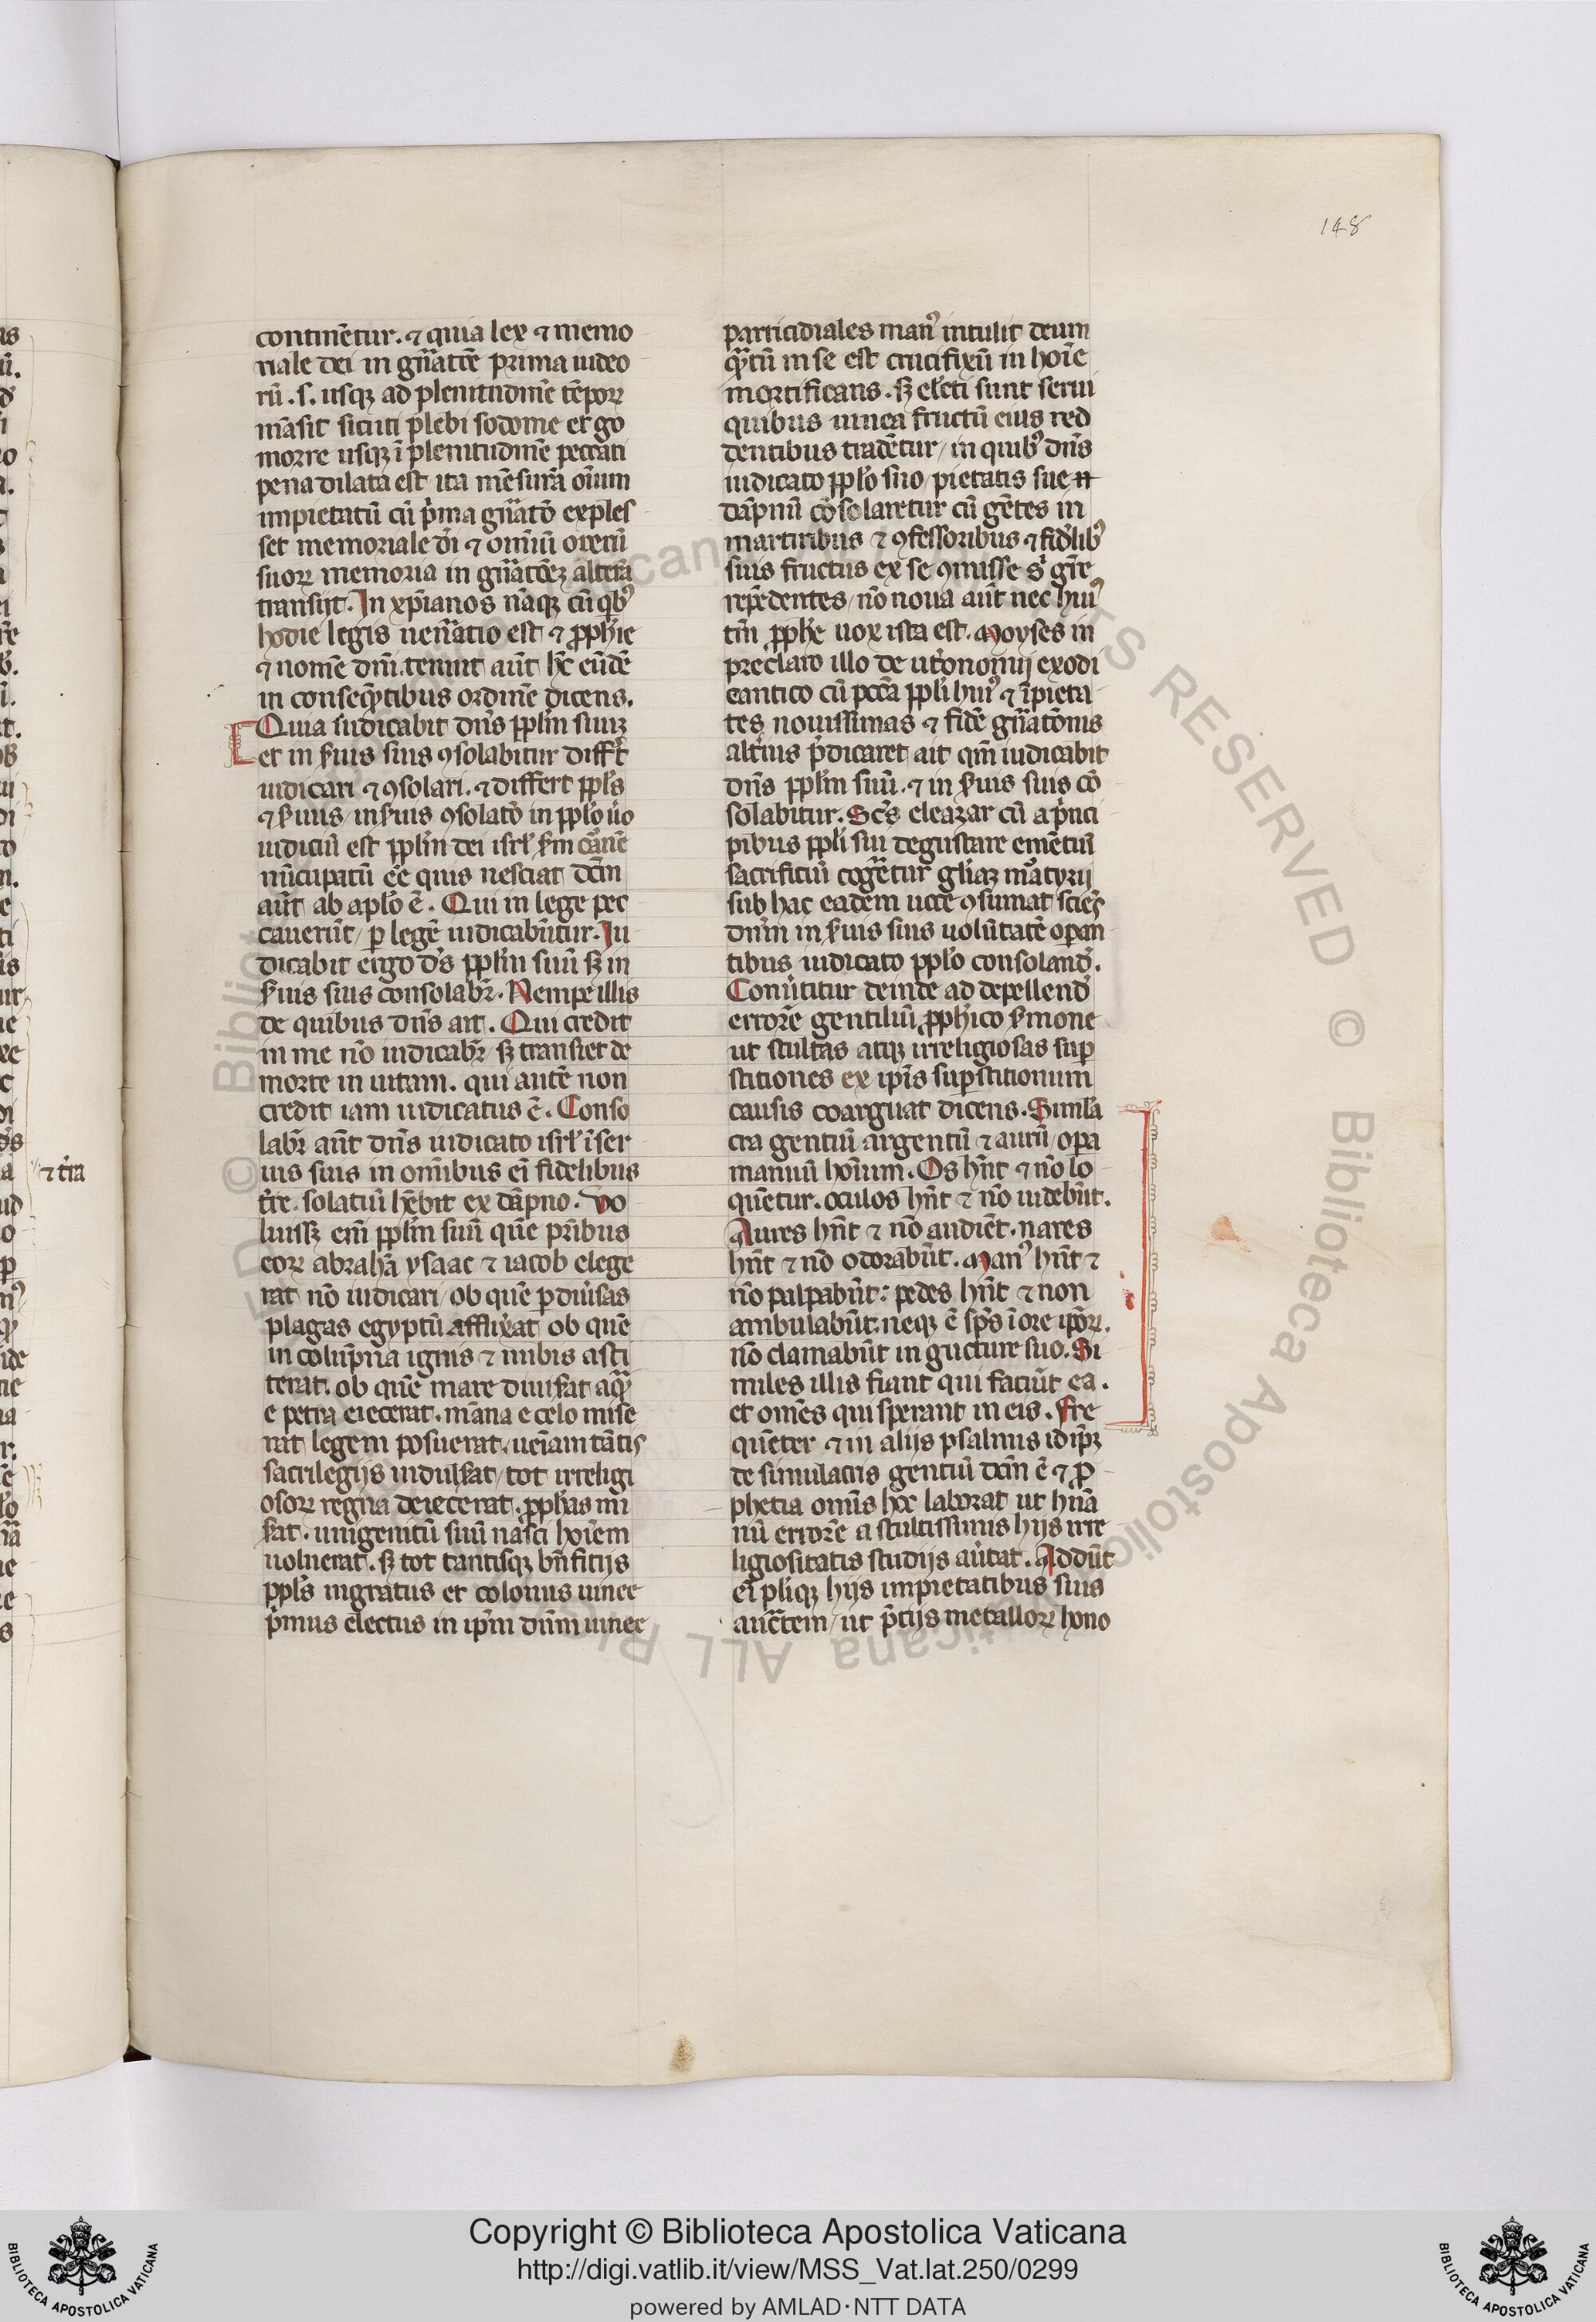 148
continētur. ⁊ quia lex ⁊ memo
riale dei in gn̄atōe prima iudeo
rū. s. usqꝫ ad plenitudinē tēporꝝ
māsit sicuti plebi sodome et go
morre usqꝫ ī plenitudinē peccati
pena dilata est ita mēsurā oīum
impietatū cū pͥma gn̄atō exples
set memoriale dī ⁊ omīū operū
suorꝝ memoria in gn̄atōeꝫ alterā
transijt. In xp̄ianos nāqꝫ cū qͥbꝰ
hodie legis uen̄atio est ⁊ ꝓph̄ie
⁊ nomē dn̄i. tenuit aūt hē eūdē
in conseqn̄tibus ordinē dicens.
Quia iudicabit dn̄s ppl̄m suuꝫ
et in ẜuis suis ꝯsolabitur diff̄t
iudicari ⁊ ꝯsolari. ⁊ differt ppl̄s
⁊ ẜuus/ in ẜuis ꝯsolatō in ppl̄o ūo
iudiciū est ppl̄m dei isrl̄ ẜm cānē
nūcupatū ēe quis nesciat dc̄m
aūt ab apl̄o ē. Qui in lege pec
cauerūt/ ꝑ legē iudicabūtur. Iu
dicabit ergo ds̄ ppl̄m suū sꝫ in
ẜuis suis consolabr̄. Nempe illis
de quibus dn̄s ait. Qui credit
in me nō iudicabr̄/ sꝫ transiet de
morte in uitam. qui autē non
credit iam iudicatus ē. Conso
labr̄ aūt dn̄s iudicato isrl̄ ī ser
uis suis in omībus eī fidelibus
tr̄e. solatiū hēbit ex dāpno. Vo
luissꝫ em̄ ppl̄m suū quē pr̄ibus
eorꝝ abrahā ysaac ⁊ iacob elege
rat nō iudicari/ ob quē ꝑ diūsas
plagas egyptū afflixāt ob quē
in colūpna ignis ⁊ nubis asti
terat. ob quē mare diuiẜat aqͣꝫ
e petra eiecerat. māna e celo mise
rat legem posuerat. ueīam tātis
sacrilegijs indulẜat/ tot irreligi
osorꝝ regna deiecerat. ꝓph̄as mi
ẜat. unigenitū suū nasci hoīem
uoluerat. sꝫ tot tantisqꝫ bn̄ficijs
ppl̄s ingratus et colonus uinee
pͥmus electus in ip̄m dn̄m uinee
parricidiales manꝰ intulit deum
qͣtū in se est crucifixū in hoīe
mortificans. sꝫ elc̄ti sunt serui
quibus uinea fructū eius red
dentibus tradētur/ in quibꝰ dn̄s
iudicato ppl̄o suo/ pietatis sue n̄
dāpnū cōsolaretur cū gētes in
martiribus ⁊ ꝯfessoribus ⁊ fidēlibꝰ
suis fructus ex se ꝯmisse sͥ gr̄e
rep̄dentes/ nō noua aūt nec huiꝰ
tm̄ ꝓph̄e uox ista est. Moyses in
preclaro illo deut̄onomij exodi
cantico cū pcc̄a ppl̄i huiꝰ ⁊ īpieta
tes nouissimas ⁊ fidē gn̄atōnis
alt̄ius pͥdicaret ait qm̄ iudicabit
dn̄s ppl̄m suū. ⁊ in ẜuis suis cō
solabitur. Scs̄ eleazar cū a pͥnci
pibus ppl̄i sui degustare emētuī
sacrificiū cogētur gl̄iaꝫ mātyrij
sub hac eadem uoce ꝯsumat sciēs
dn̄m in ẜuis suis uolūtatē opan
tibus iudicato ppl̄o consolandꝰ.
Conūtitur deinde ad depellendꝰ
errorē gentiliū ꝓph̄ico ẜmone
ut stultas atqꝫ irreligiosas suꝑ
stitiones ex ip̄is suꝑstitionum
causis coarguat dicens. Simla
cra gentiū argentū ⁊ aurū/ oꝑa
manuū hoīum. Os hn̄t ⁊ nō lo
quētur. oculos hn̄t ⁊ nō uidebūt.
Aures hn̄t ⁊ nō audiēt. nares
hn̄t ⁊ nō odorabūt. Manꝰ hn̄t ⁊
nō palpabūt: pedes hn̄t ⁊ non
ambulabūt. neqꝫ ē sps̄ ī ore ipōꝝ.
nō clamabūt in gucture suo. Si
miles illis fiant qui faciūt ea.
et omēs qui sperant in eis. Fre
quēter ⁊ in alijs psalmis id ip̄ꝫ
de simulacris gentiū dc̄m ē ⁊ ꝓ
phetia omīs hoc laborat ut hūa
nū errorē a stultissimis hijs irre
ligiositatis studijs aūtat. Addūt
eī pl̄iqꝫ hijs impietatibus suis
auc̄tem/ ut pͥcijs metallorꝝ hono
⁊ tr̄ra
Copyright © Biblioteca Apostolica Vaticana
http://digi.vatlib.it/view/MSS_Vat.lat.250/0299
powered by AMLAD·NTT DATA
BIBLIOTECA APOSTOLICA VATICANA
BIBLIOTECA APOSTOLICA VATICANA